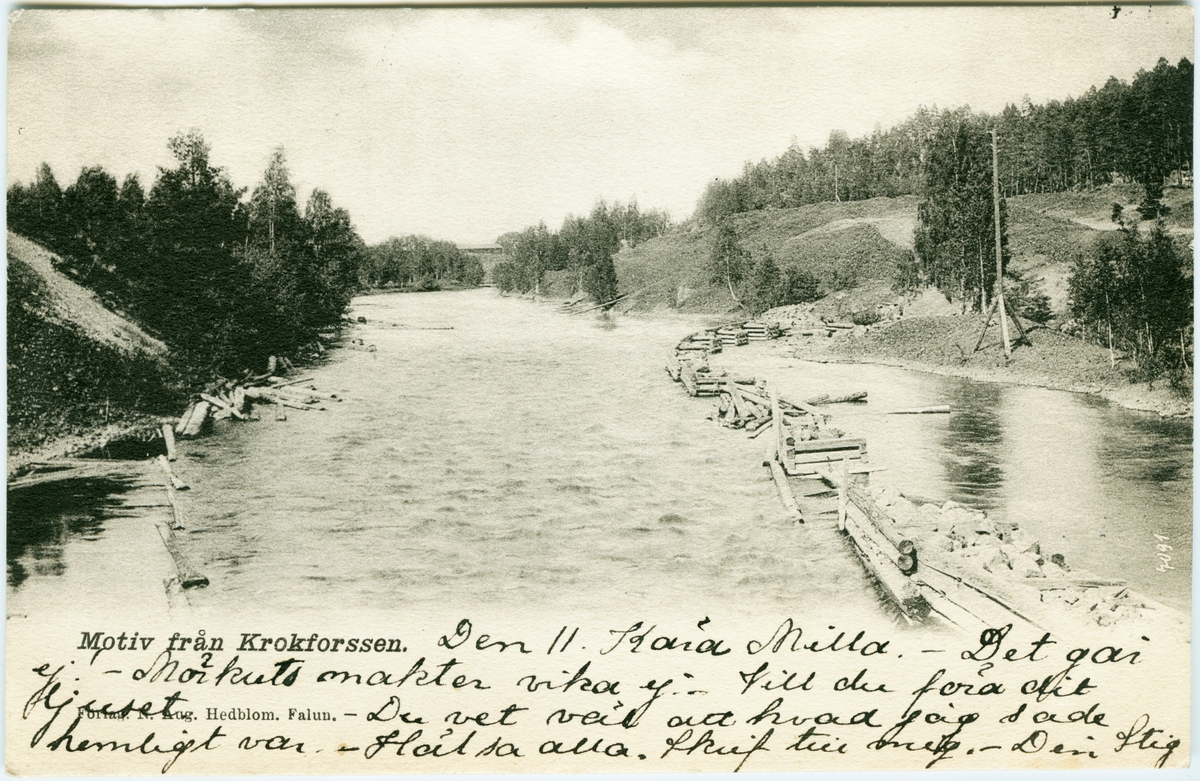 7491
Motiv från Krokforssen. Den 11. Kära Milla. - Det går
ej! - Mörkrets makter vika ej. - Vill du föra dit
ljuset
Förlag: N. Aug. Hedblom. Falun. - Du vet väl att hvad jag sade
hemligt var. - Hälsa alla. Skrif till mig. - Din Stig